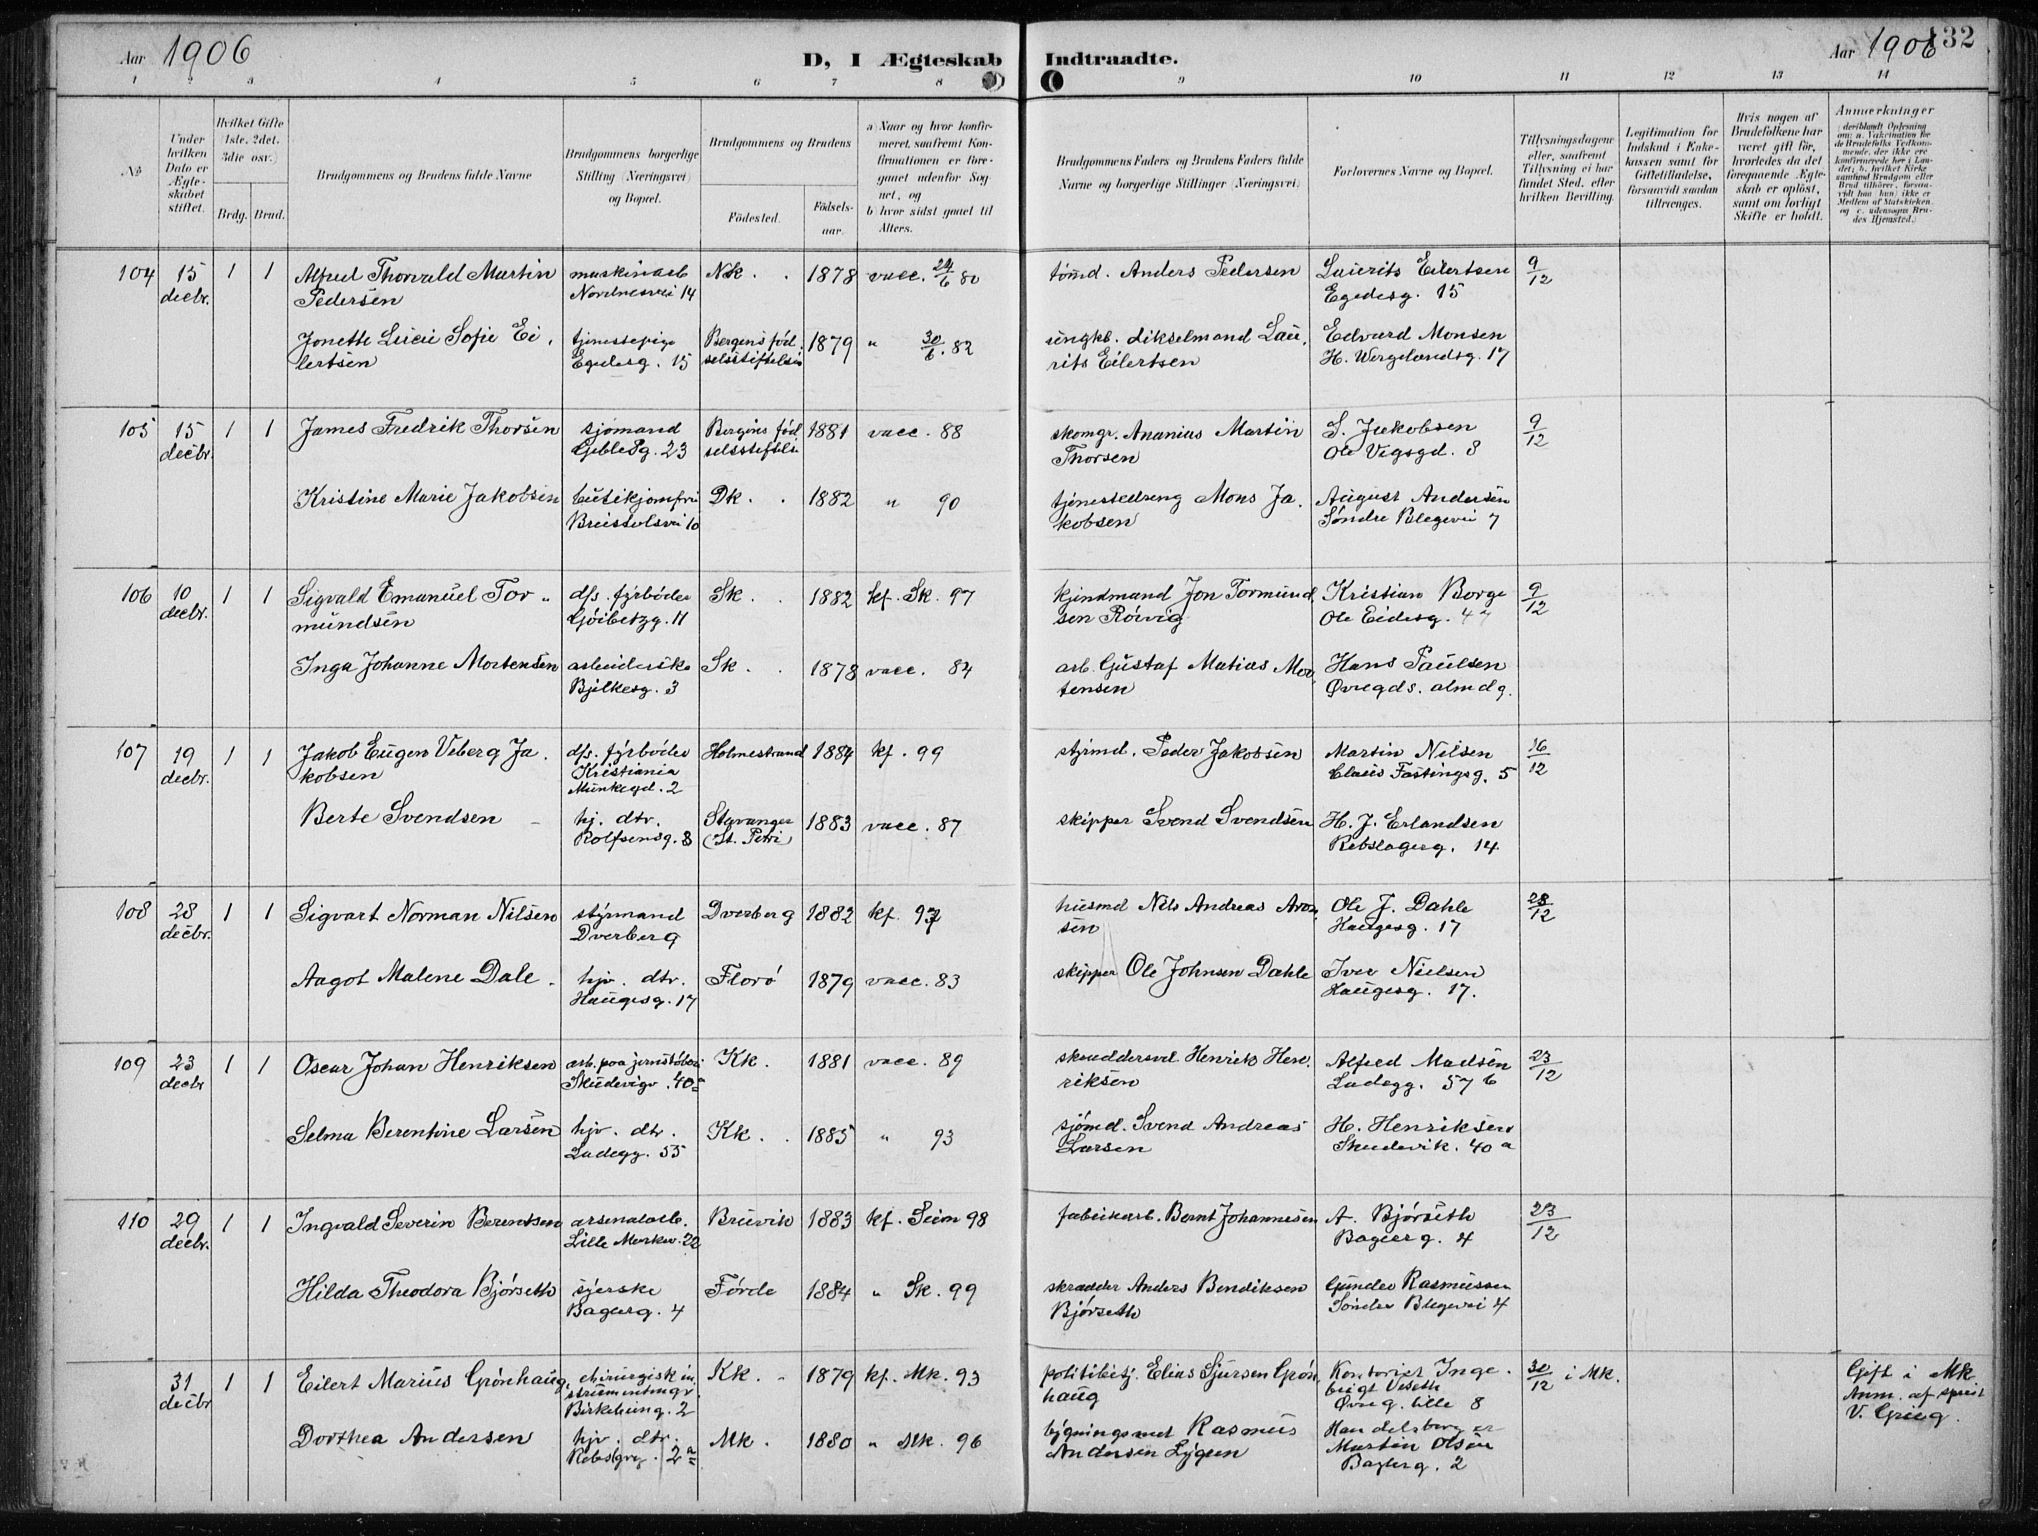 Aar 1906
D, I Ægteskab Indtraadte.
Aar 1906 132
1 2 3 4 5 6 7 8 9 10 11 12 13 14
No
Under hvilken Dato er Ægteskabet stiftet.
Hvilket Gifte (1ste, 2det, 3die osv.)
Brdg. Brud.
Brudgommens og Brudens fulde Navne
Brudgommens borgerlige Stilling (Næringsvei) og Bopæl.
Brudgommens og Brudens
Födested. Födsels-aar.
a) Naar og hvor konfirmeret, saafremt Konfirmationen er foregaaet udenfor Sognet, og
b) hvor sidst gaaet til Alters.
Brudgommens Faders og Brudens Faders fulde Navne og borgerlige Stillinger (Næringsvei)
Forlovernes Navne og Bopæl.
Tillysningsdagene eller, saafremt Tillysning ei har fundet Sted, efter hvilken Bevilling.
Legitimation for Indskud i Enkekassen samt for Giftetilladelse, forsaavidt saadan tiltrænges.
Hvis nogen af Brudefolkene har været gift för, hvorledes da det foregaaende Ægteskab er oplöst, samt om lovligt Skifte er holdt.
Anmærkninger
104 15 decbr. 1 1 Alfred Thorvald Martin Pedersen maskinarb Nordnesvei 14 Nk. 1878 vacc. 24/6 80 tømd. Anders Pedersen Laurits Eilertsen Egedesg. 15 9/12
Jonette Lucie Sofie Eilertsen tjenestepige Egedesg. 15 Bergens fødselsstiftelse 1879 " 30/6. 82 ungkl. Laurits Eilertsen Edvard Monsen H. Wergelandsg. 17
105 15 decbr. 1 1 James Fredrik Thorsen sjømand Gebleg. 23 Bergens fødselsstiftelse 1881 vacc. 88 skomgr. Ananias Martin Thorsen S. Jakobsen Ole Vigsgd. 8 9/12
Kristine Marie Jakobsen butikjomfru 10 Dk. 1882 " 90 tjenestedreng Mons Jakobsen August Andersen Søndre Blegevei 7
106 10 decbr. 1 1 Sigvald Emanuel Tormundsen dfs. fyrbøder 11 Sk. 1882 kf. Sk. 97 Jon Tormundsen Rørvig Kristian Borge Ole Eidesg. 9/12
Inga Johanne Mortensen arbeiderske Bjelkesg. 3 Sk. 1878 vacc. 84 arb. Gustaf Matias Mortensen Hans Paulsen Øvregds. almdg.
107 19 decbr. 1 1 Jakob Eugen Viberg Jakobsen dfs. fyrbøder Kristiania Munkegd. 2 Holmestrand 1884 kf. 99 styrmd. Peder Jakobsen Martin Nilsen Claus Fastingsg. 5 16/12
Berte Svendsen hj. dtr. Rolfsensg. 8 Stavanger (St. Petri) 1883 vacc. 87 skipper Svend Svendsen H. J. Erlandsen Rebslagerg. 14
108 28 decbr. 1 1 Sigvart Norman Nilsen styrmand Dverberg Dverberg 1882 kf. 97 husmd Nils Andreas Aronsen Ole J. Dahle Haugesg. 17 28/12
Aagot Malene Dale hjv. dtr. Haugesg. 17 Florø 1879 vacc. 83 skipper Ole Johnsen Dahle Iver Nielsen Haugesg. 17.
109 23 decbr 1 1 Oscar Johan Henriksen arb. paa jernstøberi Skudevigv. 40a Kk. 1881 vacc. 89 skreddersvd. Henrik Henriksen Alfred Madsen Ladegg. 57 b 23/12
Selma Berentine Larsen hjv. dtr. Ladegg. 55 Kk. 1885 " 93 sjømd. Svend Andreas Larsen H. Henriksen Skudevik. 40 a
110 29 decbr. 1 1 Ingvald Severin Berentsen arsenalarb. Lille Markev. 22 Bruvik 1883 kf. Seim 98 fabrikarb. Bernt Johannesen A. Bjørseth Baglerg. 4 23/12
Hilda Theodora Bjørseth syerske Baglerg. 4 Førde 1884 " Sk. 99 skrædder Anders Bendiksen Bjørseth Gunder Rasmussen Søndre Blegevei 4
31 decbr 1 1 Eilert Marius Grønhaug chirurgisk instrumentmgr. Birkebeing. 2 Kk. 1879 kf. Mk. 93 politibetj. Elias Sjursen Grønhaug Kontorist Ingebrigt Viseth Øvreg. lille 8 30/12 i Mk. Gift i Mk. Anm. af sprest V. Grieg.
Dorthea Andersen hjv. dtr. Rebslgrg. 2a Mk. 1880 " Mk. 96 bygningsmst Rasmus Andersen Lygren Handelsborger Martin Olsen Baglerg. 2